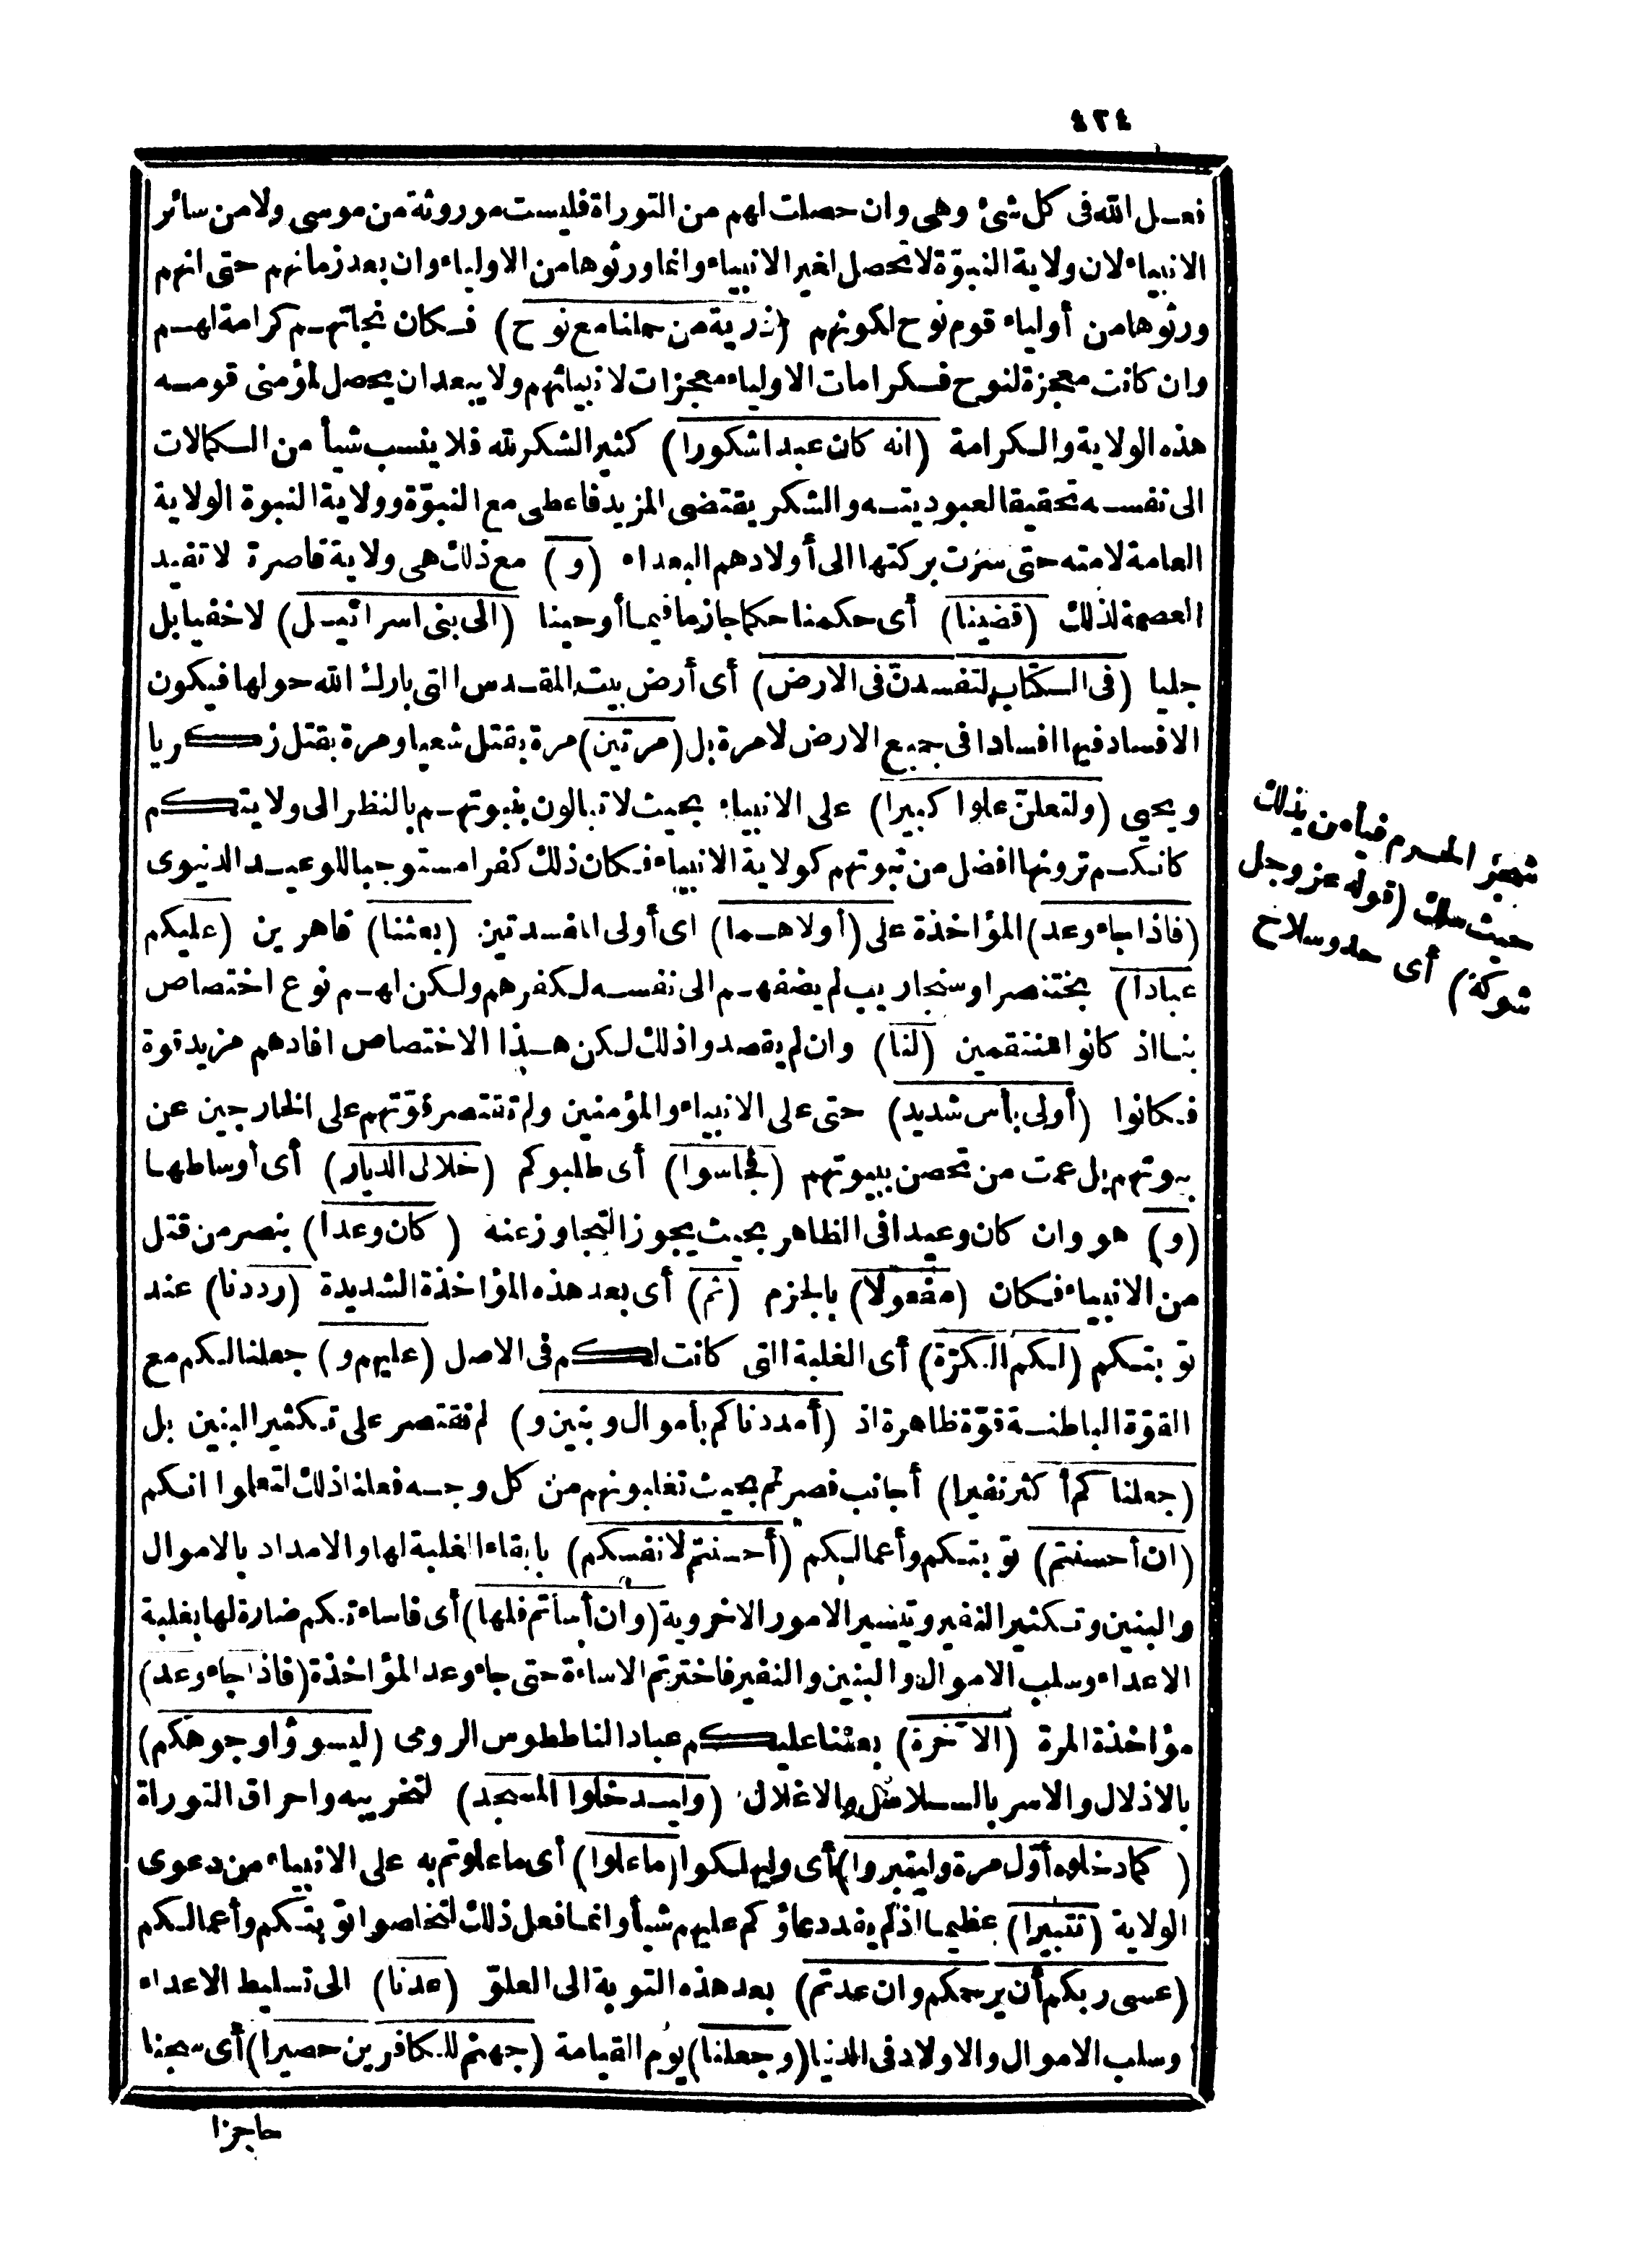 ٤٢٤
فعل الله فى كل شئ وهى وان حصلت لهم من التوراة فليست موروثة من موسى ولا من سائر
الانبياء لان ولاية النبوّة لا تحصل لغير الانبياء وانما ورثوها من الاولياء وان بعد زمانهم حتى انهم
ورثوها من أولياء قوم نوح لكونهم (ذرية من حملنا مع نوح) فكان نجاتهم كرامة لهم
وان كانت معجزة لنوح فكرامات الاولياء معجزات لانبيائهم ولا يبعد ان يحصل لمؤمنى قومه
هذه الولاية والكرامة (انه كان عبدا شكورا) كثير الشكر لله فلا ينسب شيأ من الكمالات
الى نفسه تحقيقا لعبوديته والشكر يقتضى المزيد فاعطى مع النبوّة وولاية النبوة الولاية
العامة لامته حتى سرت بركتها الى أولادهم البعداء (و) مع ذلك هى ولاية قاصرة لا تفيد
العصمة لذلك (قضينا) أى حكمنا حكما جازما فيما أوحينا (الى بنى اسرائيل) لا خفيا بل
جليا (فى الكتاب لتفسدنّ فى الارض) أى أرض بيت المقدس التى بارك الله حولها فيكون
الافساد فيها افسادا فى جميع الارض لا مرة بل (مرتين) مرة بقتل شعيا ومرة بقتل زكريا
ويحيى (ولتعلنّ علوا كبيرا) على الانبياء بحيث لا تبالون بنبوتهم بالنظر الى ولايتكم
كانكم ترونها افضل من نبوتهم كولاية الانبياء فكان ذلك كفرا مستوجبا للوعيد الدنيوى
(فاذا جاء وعد) المؤاخذة على (أولاهما) اى أولى المفسدتين (بعثنا) قاهرين (عليكم
عبادا) بختنصر او سنجاريب لم يضفهم الى نفسه لكفرهم ولكن لهم نوع اختصاص
بنا اذ كانوا منتقمين (لنا) وان لم يقصدوا ذلك لكن هذا الاختصاص افادهم مزيد قوة
فكانوا (أولى بأس شديد) حتى على الانبياء والمؤمنين ولم تقتصر قوّتهم على الخارجين عن
بيوتهم بل عمت من تحصن ببيوتهم (فجاسوا) أى طلبوكم (خلال الديار) أى أوساطها
(و) هو وان كان وعيدا فى الظاهر بحيث يجوز التجاوز عنه (كان وعدا) بنصر من قتل
من الانبياء فكان (مفعولا) بالجزم (ثم) أى بعد هذه المؤاخذة الشديدة (رددنا) عند
توبتكم (لكم الكرّة) أى الغلبة التى كانت لكم فى الاصل (عليهم و) جعلنا لكم مع
القوّة الباطنة قوّة ظاهرة اذ (أمددناكم بأموال وبنين و) لم نقتصر على تكثير البنين بل
(جعلناكم أكثر نفيرا) أجانب فصرتم بحيث تغلبونهم من كل وجه فعلنا ذلك لتعلموا انكم
(ان أحسنتم) توبتكم وأعمالكم (أحسنتم لانفسكم) بابقاء الغلبة لها والامداد بالاموال
والبنين وتكثير النفير وتيسير الامور الاخروية (وان أسأتم فلها) أى فاساءتكم ضارة لها بغلبة
الاعداء وسلب الاموال والبنين والنفير فاخترتم الاساءة حتى جاء وعد المؤاخذة (فاذا جاء وعد)
مؤاخذة المرة (الآخرة) بعثنا عليكم عبادا لنا ططوس الرومى (ليسوؤا وجوهكم)
بالاذلال والاسر بالسلاسل والاغلال (وليدخلوا المسجد) لتخريبه واحراق التوراة
(كما دخلوه أوّل مرة وليتبروا) أى وليهلكوا (ما علوا) أى ما علوتم به على الانبياء من دعوى
الولاية (تتبيرا) عظيما اذ لم يفد دعاؤكم عليهم شيأ وانما فعل ذلك لتخلصوا توبتكم وأعمالكم
(عسى ربكم أن يرحمكم وان عدتم) بعد هذه التوبة الى العلوّ (عدنا) الى تسليط الاعداء
وسلب الاموال والاولاد فى الدنيا (وجعلنا) يوم القيامة (جهنم للكافرين حصيرا) أى سجنا
حاجزا
شهر المحرم فيأمن بذلك
حيث سلك (قوله عز وجل
شوكة) أى حد وسلاح